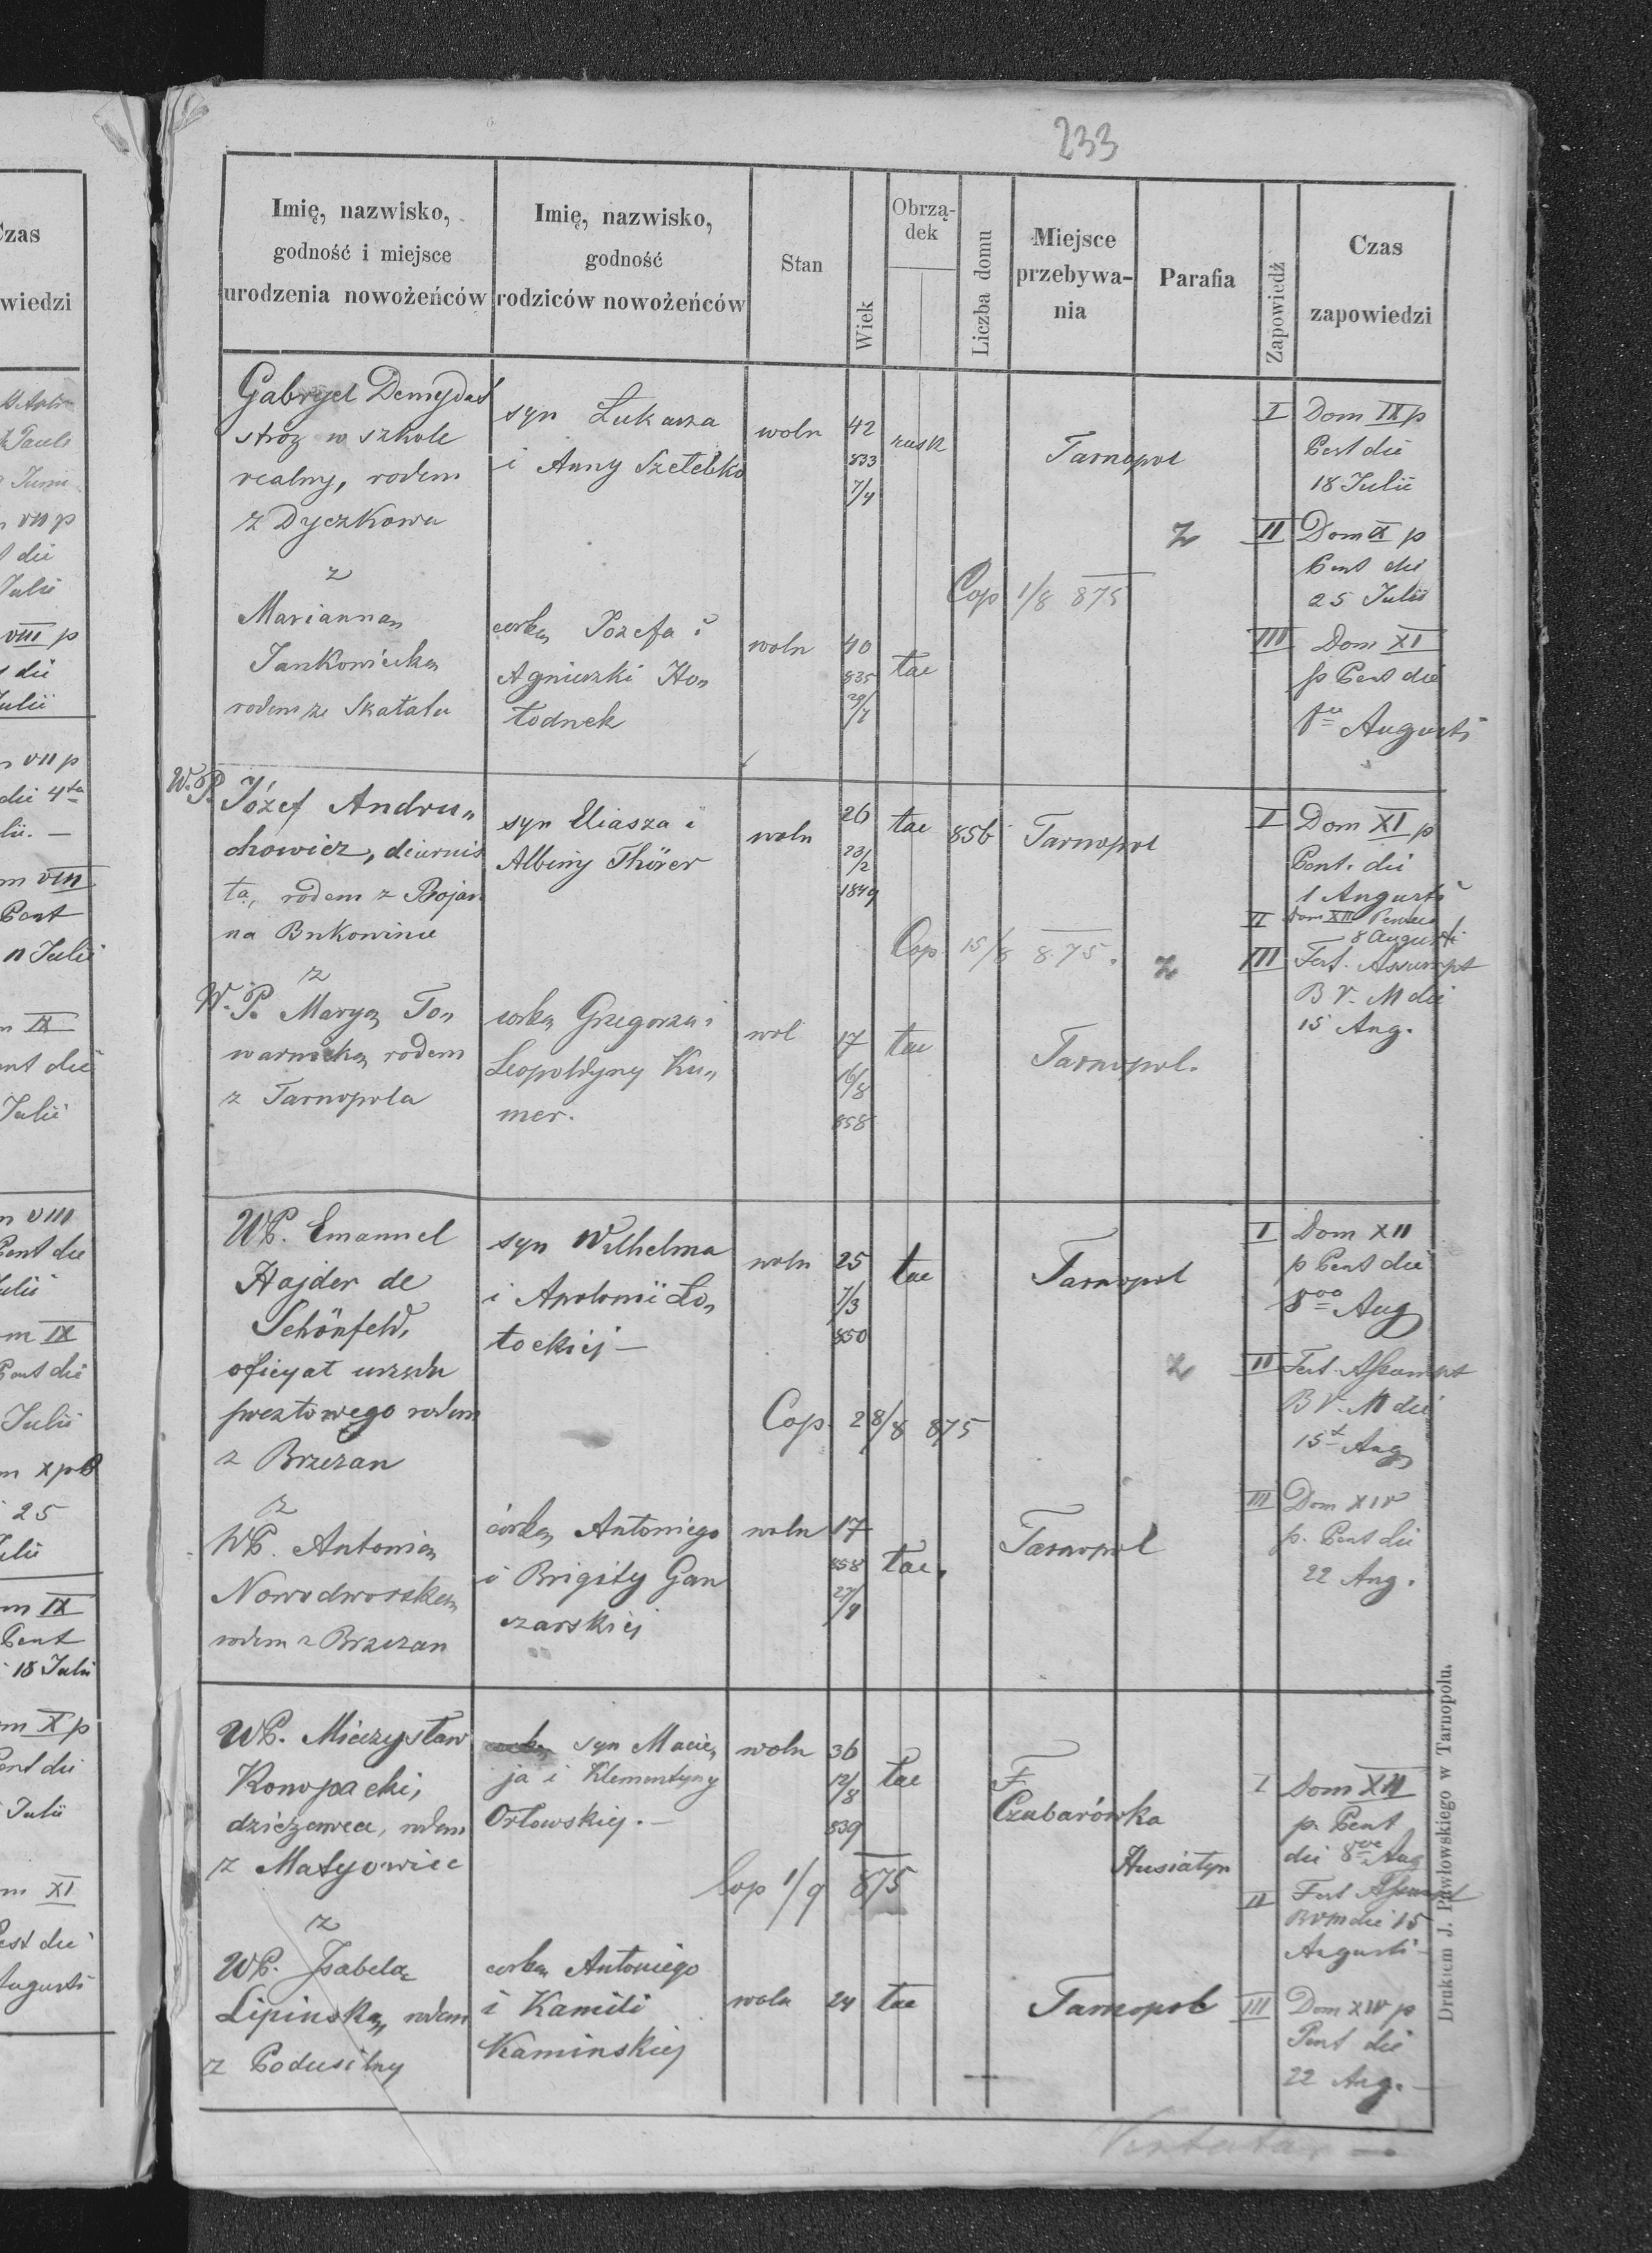 233
Imię, nazwisko,
godność i miejsce
urodzenia nowożeńców
Imię, nazwisko,
godność
rodziców nowożeńców
Stan
Wiek
Obrzą-
dek
Liczba domu
Miejsce
przebywa-
nia
Parafia
Zapowiedź
Czas
zapowiedzi
Gabryel Demydas
stroz w szkole
realny, rodem
z Dyczkowa
syn Łukasza
i Anny Szetebko
woln
42
833
7/4
rusk
Tarnopol
I
Dom IX p
Pent die
18 Julii
II
Dom X p
Pent die
25 Julii
III
Dom XI
p Pent die
Augusti
z
Cop 1/8 875
z
Marianna
Jankowicka
rodem ze Skałatu
corka Józefa i
Agnieszki Ho„
łodnek
woln
40
835
29/7
łac
W. P.
Józef Andru„
chowicz, diurnis
ta, rodem z Bojan
na Bukowinie
syn Eliasza i
Albiny Thörer
woln
26
23/2
1849
łac
856
Tarnopol
I
Dom XI p
Pent. die
1 Augusti
II
Dom XII Pentec
8 Augusti
III
Fest. Assumpt
B V. M die
15 Aug.
Cop 15/8 875.
z
z
W. P. Marya To„
warnicka rodem
z Tarnopola
corka Grzegorza i
Leopoldyny Ku„
mer.
wol
17
16/8
858
łac
Tarnopol.
WP. Emanuel
Hajder de
Schönfeld,
oficyał urzędu
pocztowego rodem
z Brzezan
syn Wilhelma
i Apolonii Zło„
tockiej —
woln
25
7/3
850
łac
Tarnopol
I
Dom XII
p Pent die
8va Aug
II
Fest. Assumpt
B V. M die
15t Aug
III
Dom XIV
p. Pent die
22 Aug.
z
Cop. 28/8 875
z
WP. Antonia
Nowodworska
rodem z Brzezan
córka Antoniego
i Brigity Gan
czarskiej
woln
17
858
27/4
łac.
Tarnopol
WP. Mieczysław
Konopacki,
dzierzawca, rodem
z Matyowiec
syn Macie„
ja i Klementyny
Orłowskiej. —
woln
36
12/8
839
łac
F
Czabarówka
Husiatyn
I
Dom XII
p. Pent
die 8va Aug
II
Fest Assumpt
BVM die 15
Augusti —
III
Dom XIV p
Pent die
22 Aug. —
Cop 1/9 875
z
WP. Isabela
Lipinska, rodem
z Podusilny
corka Antoniego
i Kamili
Kaminskiej
woln
24
łac
Tarnopol
Drukiem J. Pawłowskiego w Tarnopolu.